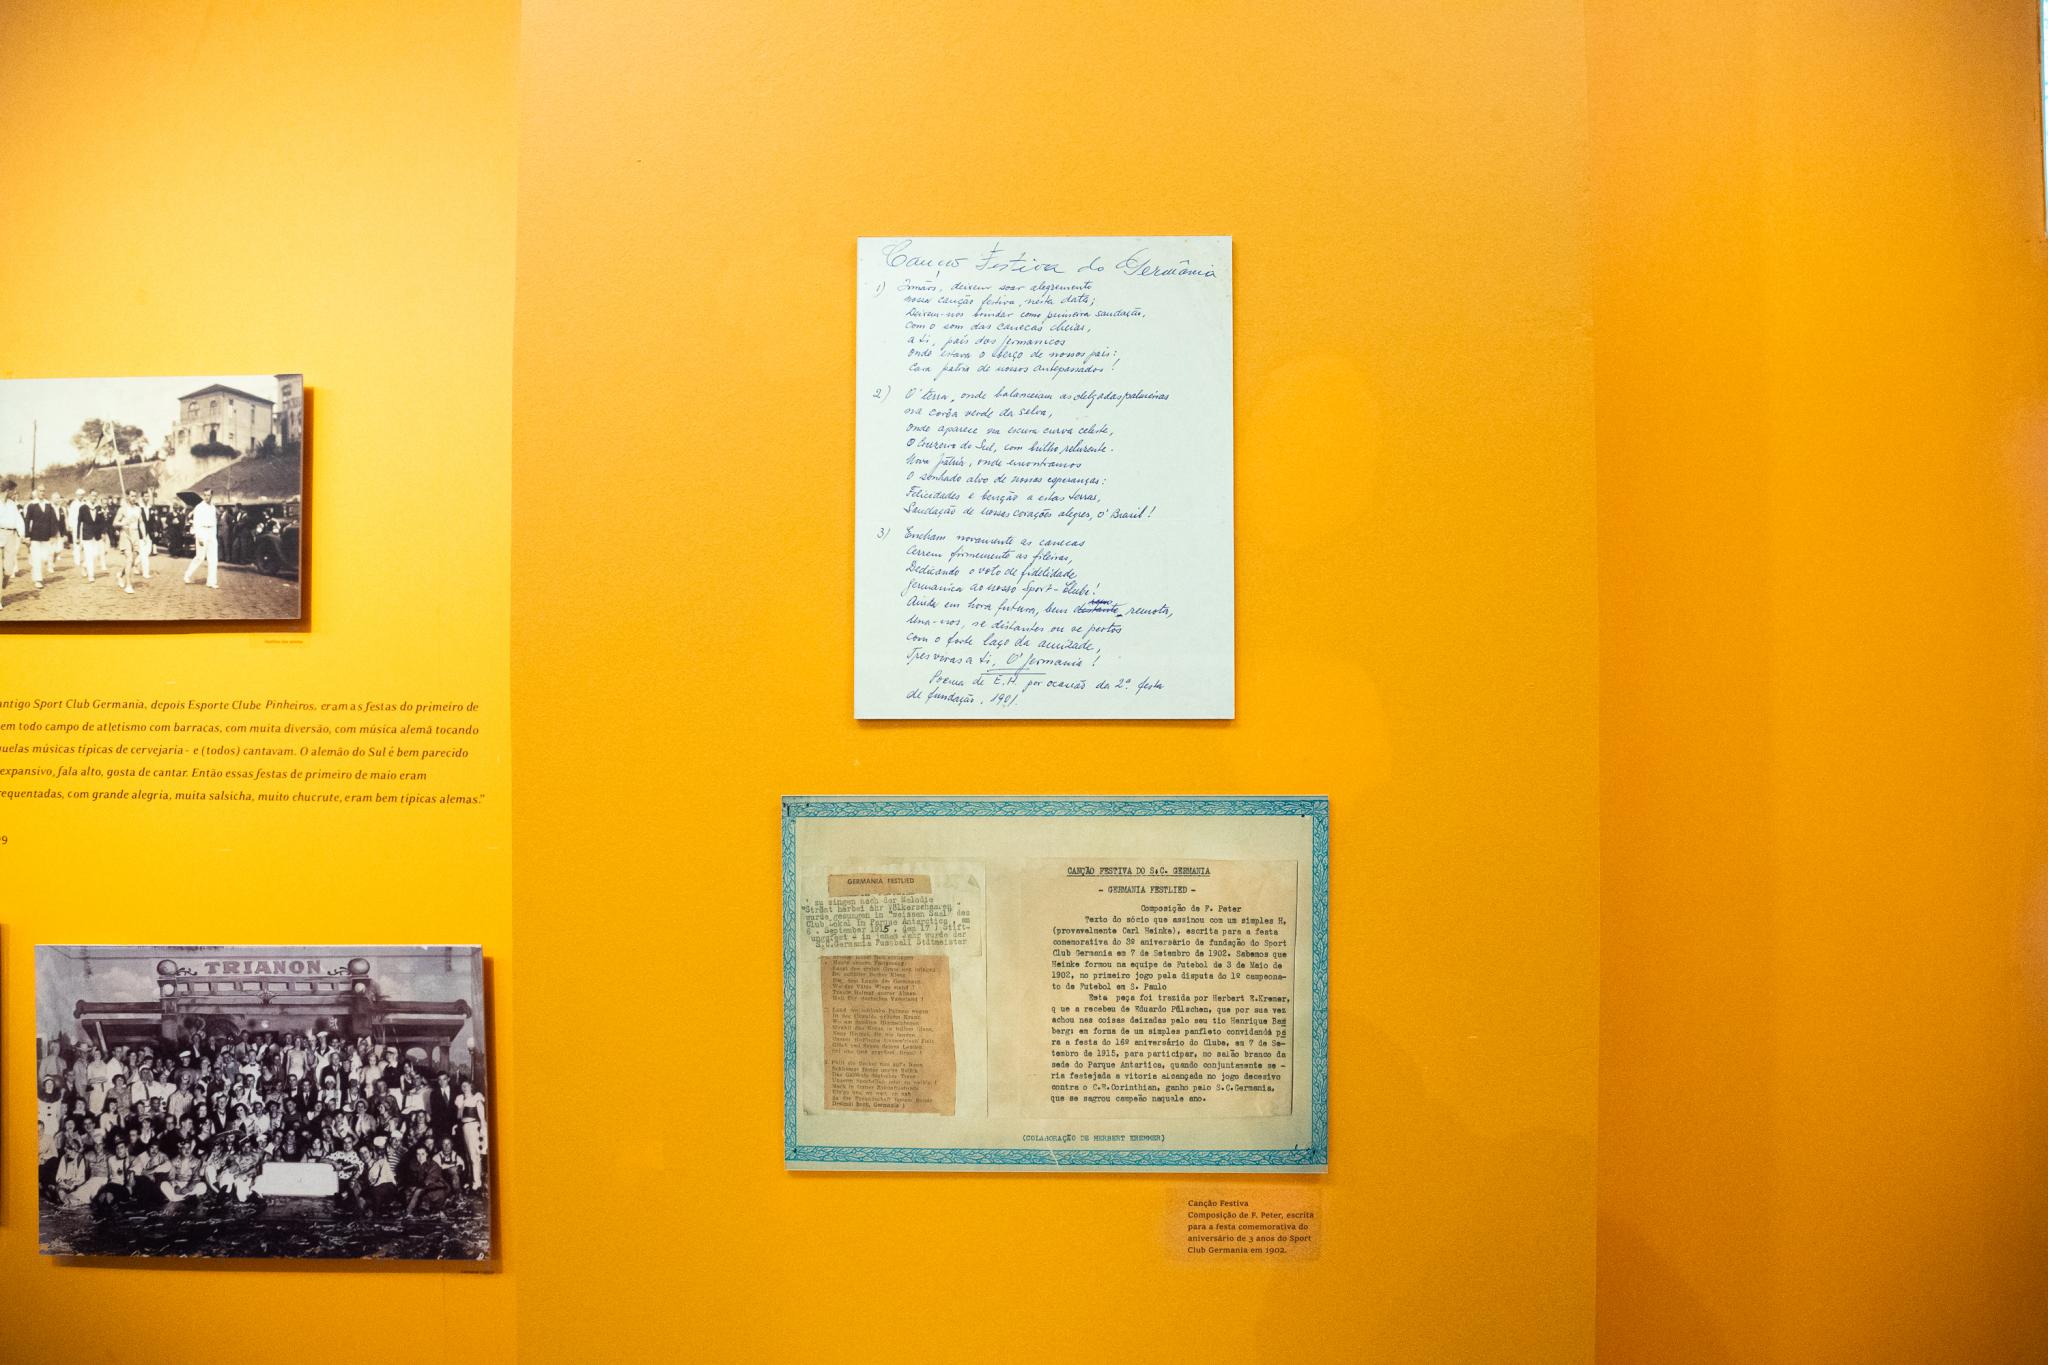 antigo Sport Club Germania, depois Esporte Clube Pinheiros, eram as festas do primeiro de
em todo campo de atletismo com barracas, com muita diversão, com música alemã tocando
uelas músicas típicas de cervejaria - e (todos) cantavam. O alemão do Sul é bem parecido
expansivo, fala alto, gosta de cantar. Então essas festas de primeiro de maio eram
requentadas, com grande alegria, muita salsicha, muito chucrute, eram bem típicas alemas."
9
TRIANON
Canção Festiva do Germânia
1) Irmãos, deixem soar alegremente
nossa canção festiva, nesta data;
Deixem-nos brindar como primeira saudação,
com o som das canecas cheias,
a ti, país dos germanicos
onde estava o berço de nossos pais:
Cara patria de nossos antepassados!
2) O' terra, onde balanceiam as delgadas palmeiras
na corôa verde da selva,
onde aparece na escura curva celeste,
O Cruzeiro do Sul, com brilho relusente.
Nova pátria, onde encontramos
O sonhado alvo de nossas esperanças:
Felicidades e benção a estas terras,
Saudação de nossos corações alegres, o' Brasil!
3) Encham novamente as canecas
Cerrem firmemente as fileiras,
Dedicando o voto de fidelidade
germanica ao nosso Sport-Club!
Ainda em hora futura, bem remota,
Una-nos, se distantes ou se pertos
com o forte laço da amizade,
Tres vivas a ti, O' Germania!
Poema de E.H. por ocasião da 2ª festa
de fundação, 1901.
GERMANIA FESTLIED
zu singen nach der Melodie
"Strömt herbei ihr Völkerscharen"
wurde gesungen in "weissen Saal" des
Club Lokal im Parque Antarctica, am
6. September 1915, den 17. Stift-
ungsfest - in jenem Jahr wurde der
S.C.Germania Fussball Stdtmeister
CANÇÃO FESTIVA DO S.C. GERMANIA
- GERMANIA FESTLIED -
Composição de F. Peter
Texto do sócio que assinou com um simples H.
(provavelmente Carl Heinke), escrita para a festa
comemorativa do 3º aniversário de fundação do Sport
Club Germania em 7 de Setembro de 1902. Sabemos que
Heinke formou na equipe de Futebol de 3 de Maio de
1902, no primeiro jogo pela disputa do 1º campeona-
to de Futebol em S. Paulo
Esta peça foi trazida por Herbert E.Kremer,
q ue a recebeu de Eduardo Pülschen, que por sua vez
achou nas coisas deixadas pelo seu tio Henrique Bam
berg; em forma de um simples panfleto convidando pa
ra a festa do 16º aniversário do Clube, em 7 de Se-
tembro de 1915, para participar, no salão branco da
sede do Parque Antartica, quando conjuntamente se -
ria festejada a vitoria alcançada no jogo decesivo
contra o C.E.Corinthian, ganho pelo S.C.Germania,
que se sagrou campeão naquele ano.
(COLABORAÇÃO DE HERBERT KREMMER)
Canção Festiva
Composição de F. Peter, escrita
para a festa comemorativa do
aniversário de 3 anos do Sport
Club Germania em 1902.